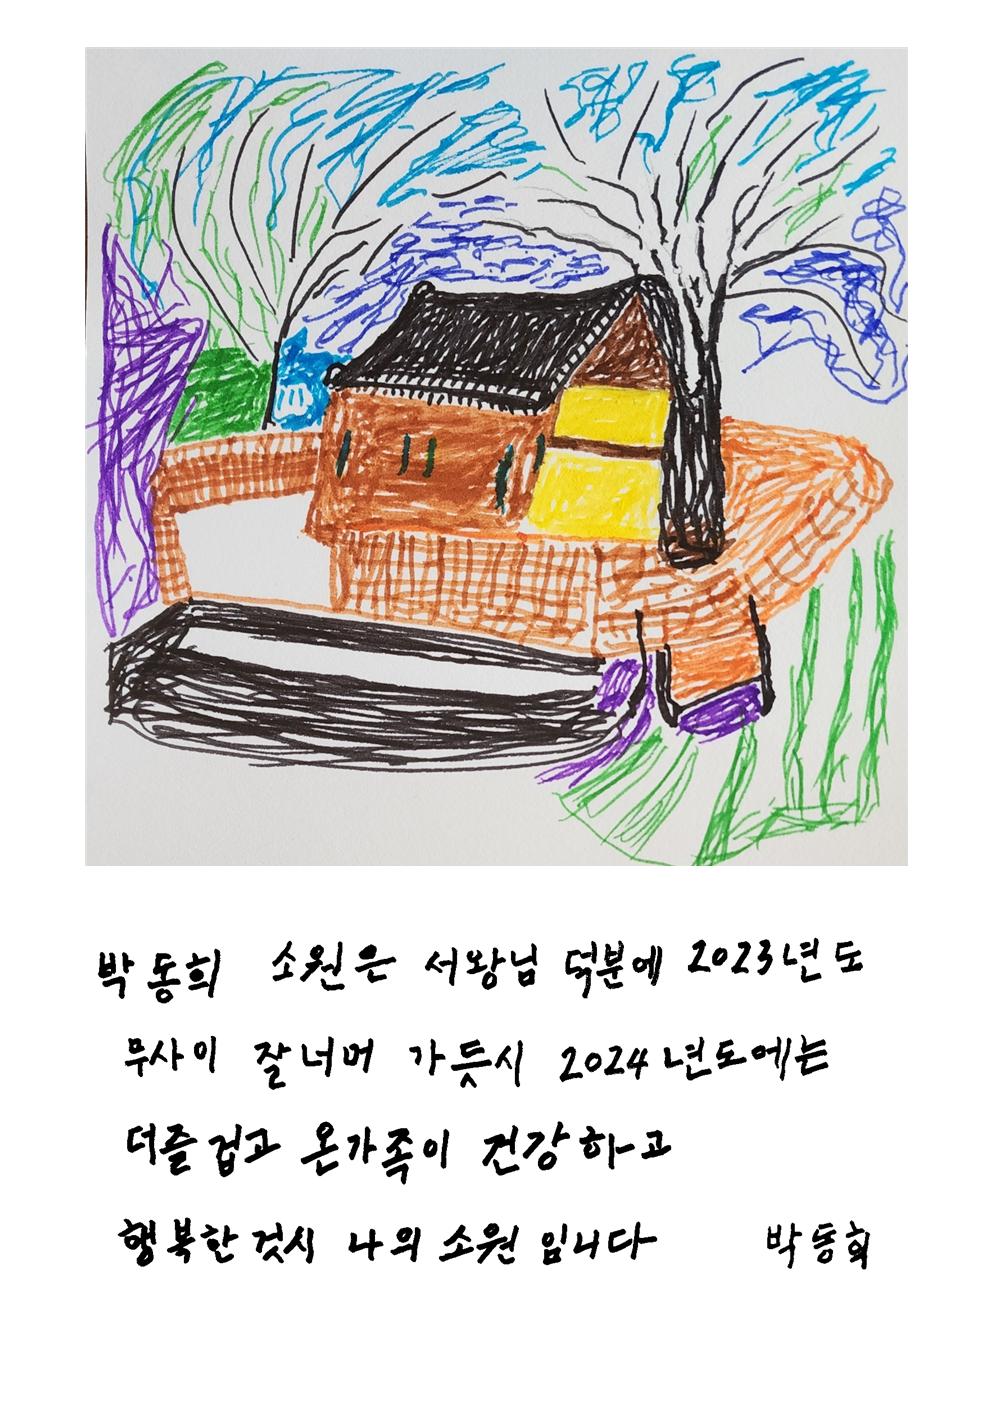 박동희 소원은 서왕님 덕분에 2023년도
무사이 잘너머 가듯시 2024년도에는
더즐겁고 온가족이 건강하고
행복한것시 나의 소원 입니다 박동희